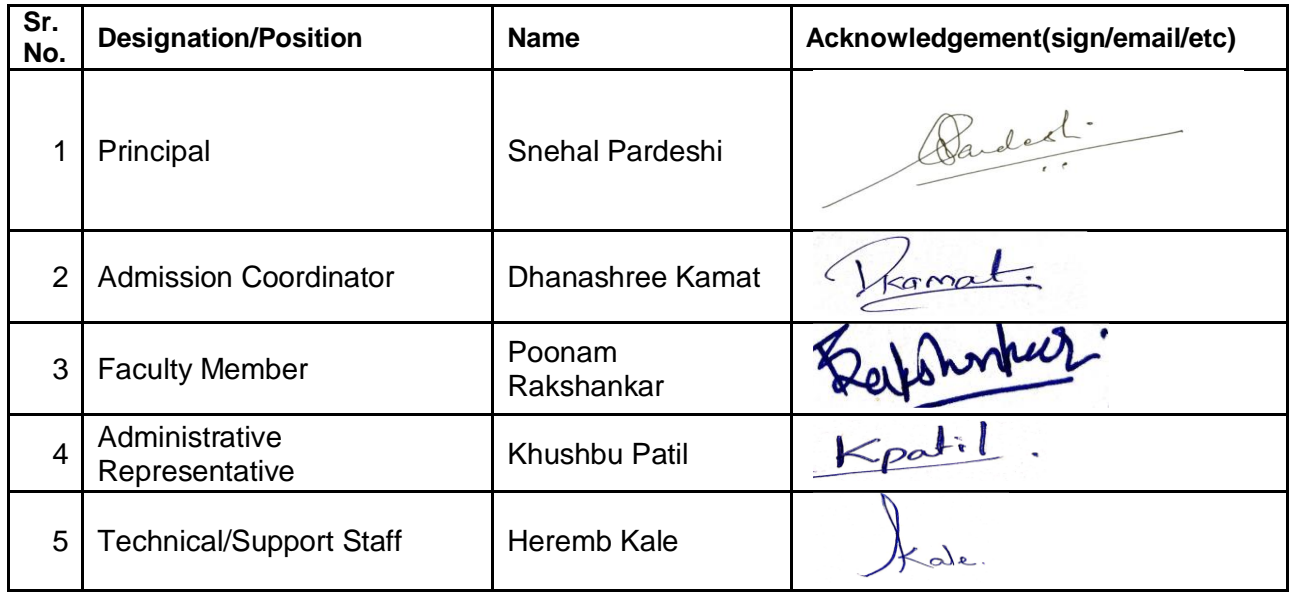 Sr. No. Designation/Position Name Acknowledgement(sign/email/etc)
1 Principal Snehal Pardeshi Pardeshi
2 Admission Coordinator Dhanashree Kamat DKamat.
3 Faculty Member Poonam Rakshankar Rakshankar.
4 Administrative Representative Khushbu Patil Kpatil.
5 Technical/Support Staff Heremb Kale Kale.